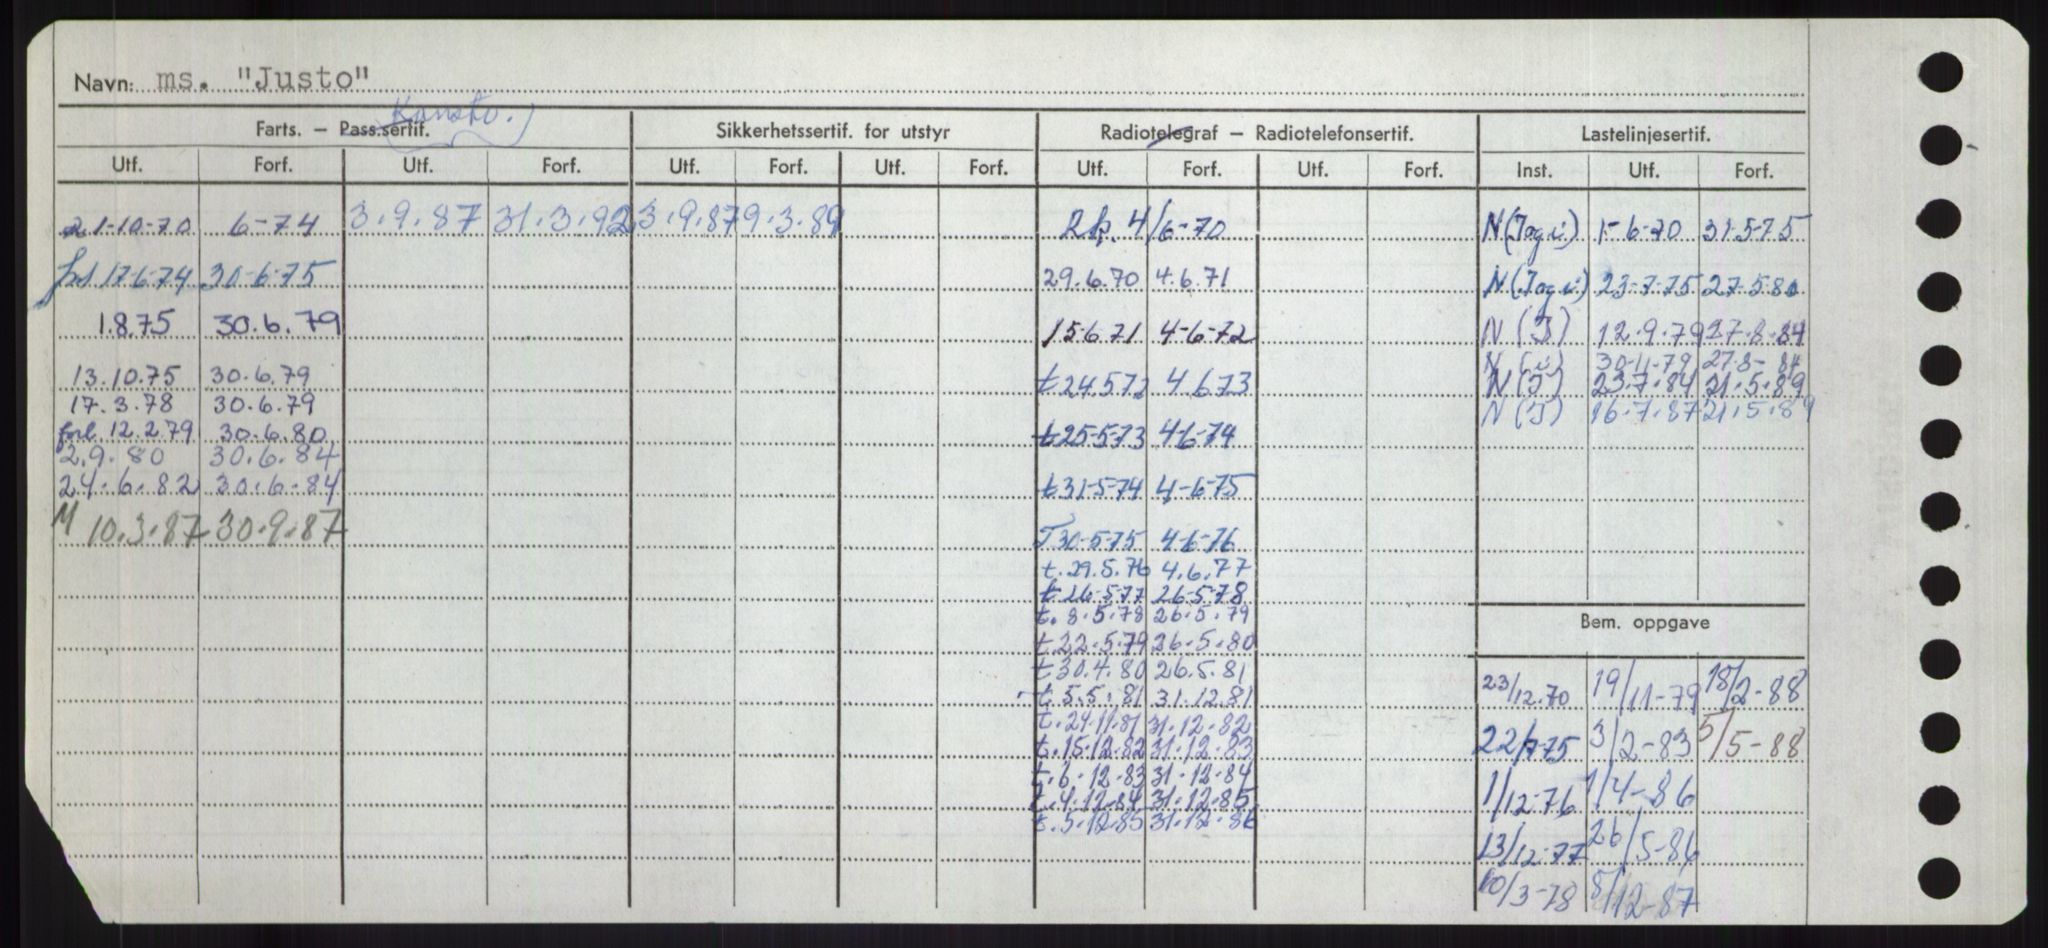 Navn: ms. "Justo"
Konstr.
Farts. – Pass.sertif. Sikkerhetssertif. for utstyr Radiotelegraf – Radiotelefonsertif. Lastelinjesertif.
Utf. Forf. Utf. Forf. Utf. Forf. Utf. Forf. Utf. Forf. Utf. Forf. Inst. Utf. Forf.
21-10-70 6-74 3.9.87 31.3.92 3.9.87 9.3.89 4/6-70 N(Jog i) 1-6-70 31-5-75
17-6-74 30-6-75 29.6.70 4.6.71 N(Jog i) 23-7-75 27-5-80
1.8.75 30.6.79 15-6-71 4-6-72 N(J) 12.9.79 27-8-84
N(i) 30-11-79 27-8-84
13.10.75 30.6.79 t 24.5.72 4.6.73 N(J) 23.7.84 21.5.89
17.3.78 30.6.79 N(J) 16.7.87 21.5.89
forl 12.2.79 30.6.80 t 25-5-73 4-6-74
2.9.80 30.6.84
24.6.82 30.6.84 t 31-5-74 4-6-75
M 10.3.87 30.9.87 T 30-5-75 4-6-76
t. 29.5.76 4.6.77
t 26-5-77 26-5-78
t. 8.5.78 26.5.79
Bem. oppgave
t 22.5.79 26.5.80
t 30.4.80 26.5.81
t. 5.5.81 31.12.81 23/12.70 19/11-79 18/2-88
t. 24.11.81 31.12.82
t. 15.12.82 31.12.83 22/7-75 3/2-83 5/5-88
t. 6.12.83 31.12.84
t. 4.12.84 31.12.85 1/12-76 1/4-86
t. 5.12.85 31.12.86
13/12-77 26/5-86
10/3-78 8/12-87